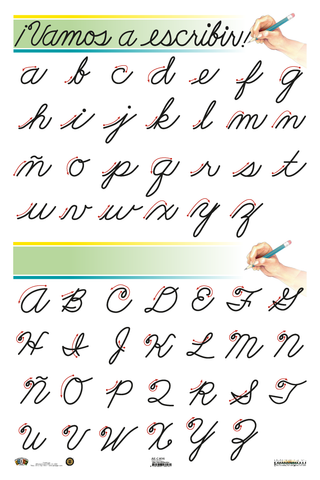 ¡Vamos a escribir!
a b c d e f g
h i j k l m n
ñ o p q r s t
u v w x y z
A B C D E F G
H I J K L M N
Ñ O P Q R S T
U V W X Y Z